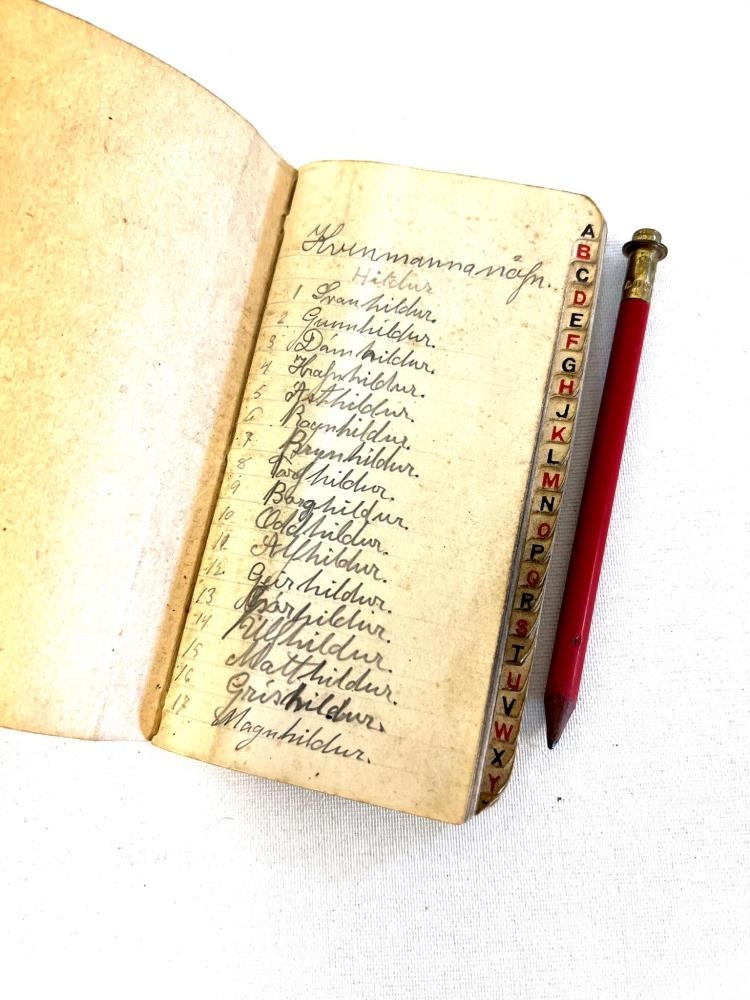 Kvenmannanöfn.
Hildur
1 Svanhildur.
2 Gunnhildur.
3 Dámhildur.
4 Hrafnhildur.
5 Ásthildur.
6 Ragnhildur.
7. Brynhildur.
8 Þórhildur.
9 Borghildur.
10 Oddhildur.
11 Alfhildur.
12. Geirhildur.
13
14 Úlfhildur.
15 Matthildur.
16 Gríshildur.
17 Magnhildur.
A
B
C
D
E
F
G
H
J
K
L
M
N
O
P
Q
R
S
T
U
V
W
X
Y